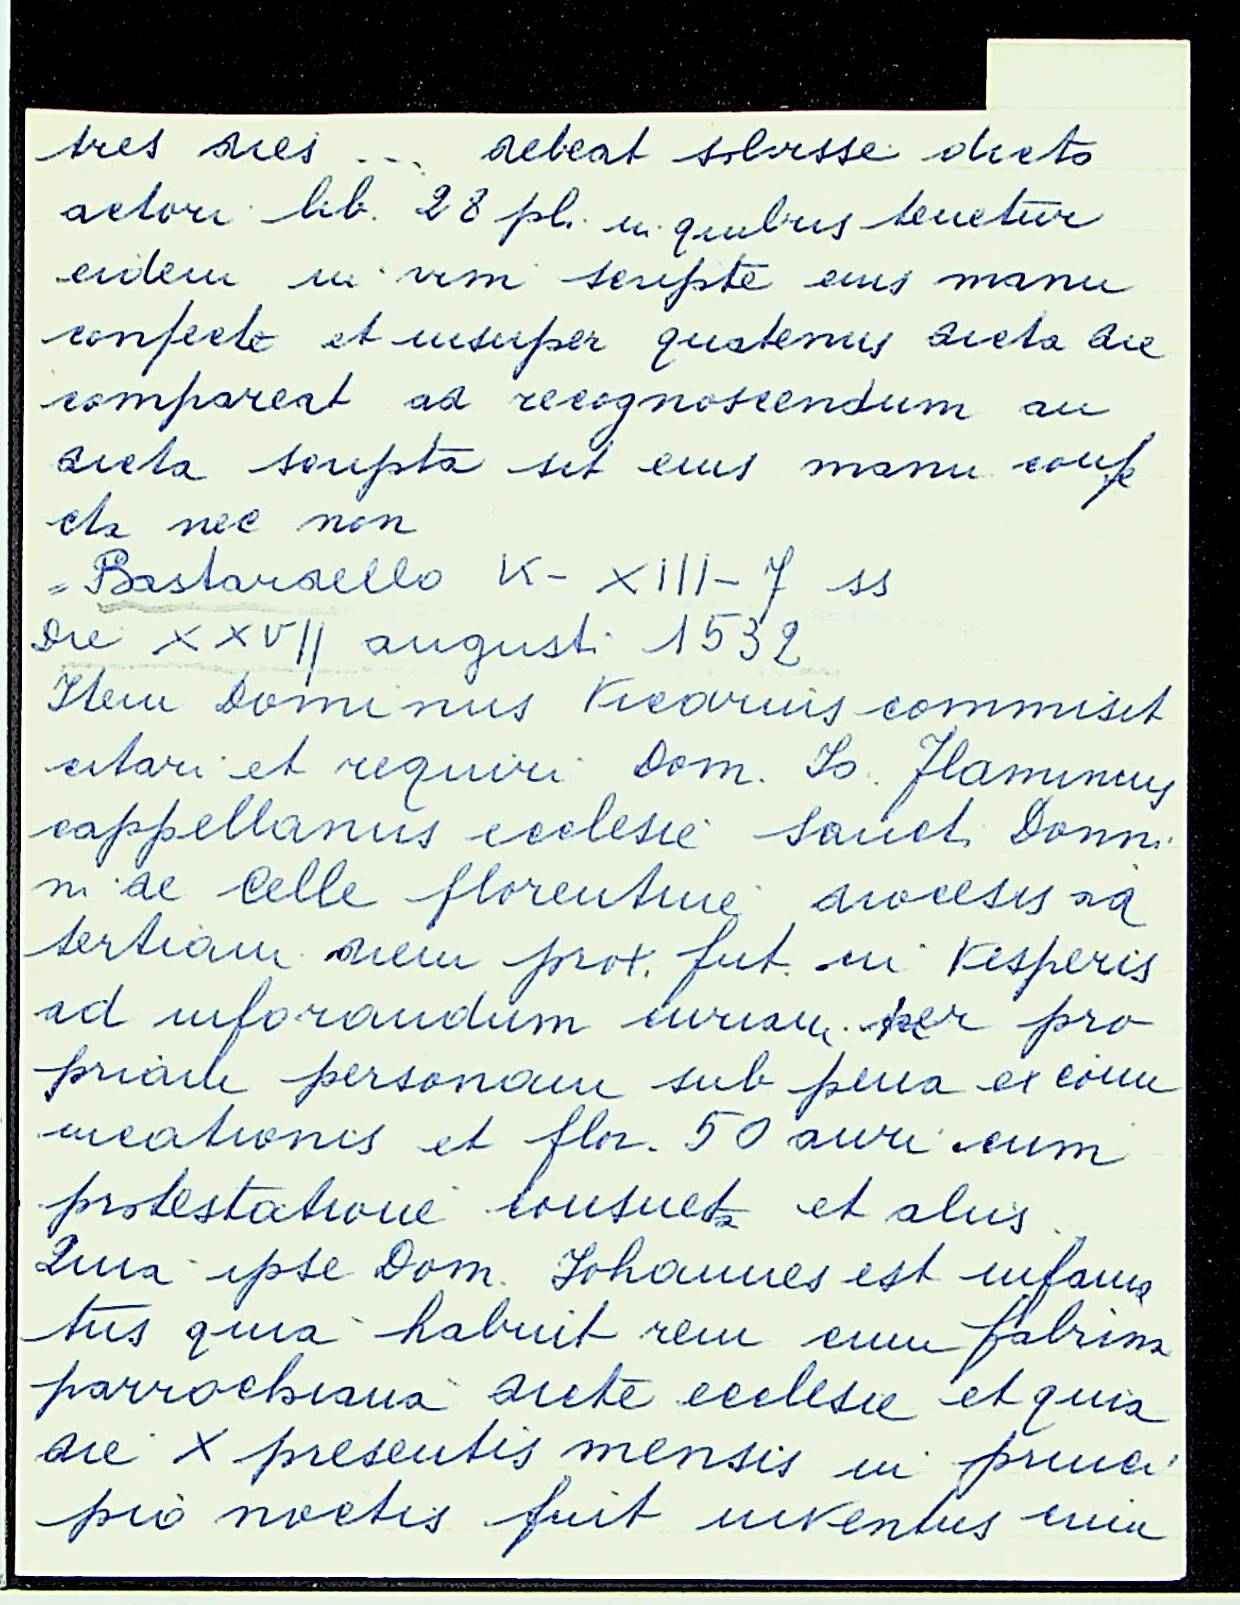 tres dies ... debeat solvisse dicto
actori lib. 28 pl. in quibus tenetur
eidem in vim scripte eius manu
confecte et insuper quatenus dicta die
compareat ad recognoscendum an
dicta scripta sit eius manu confe
cta nec non
= Bastardello K - XIII - 7 ss
Die XXVII augusti 1532
Item Dominus Vicarius commisit
citari et requiri Dom. Io. Flamineus
cappellanus ecclesie Sancti Donni
ni de Celle florentine diocesis ad
tertiam diem prox. fut. in Vesperis
ad inforandum curiam per pro
priam personam sub pena excomu
nicationis et flor. 50 auri cum
protestatione consueta et aliis
Quia ipse Dom. Johannes est infama
tus quia habuit rem cum fabrina
parrochiana dicte ecclesie et quia
die X presentis mensis in princi
pio noctis fuit inventus cum